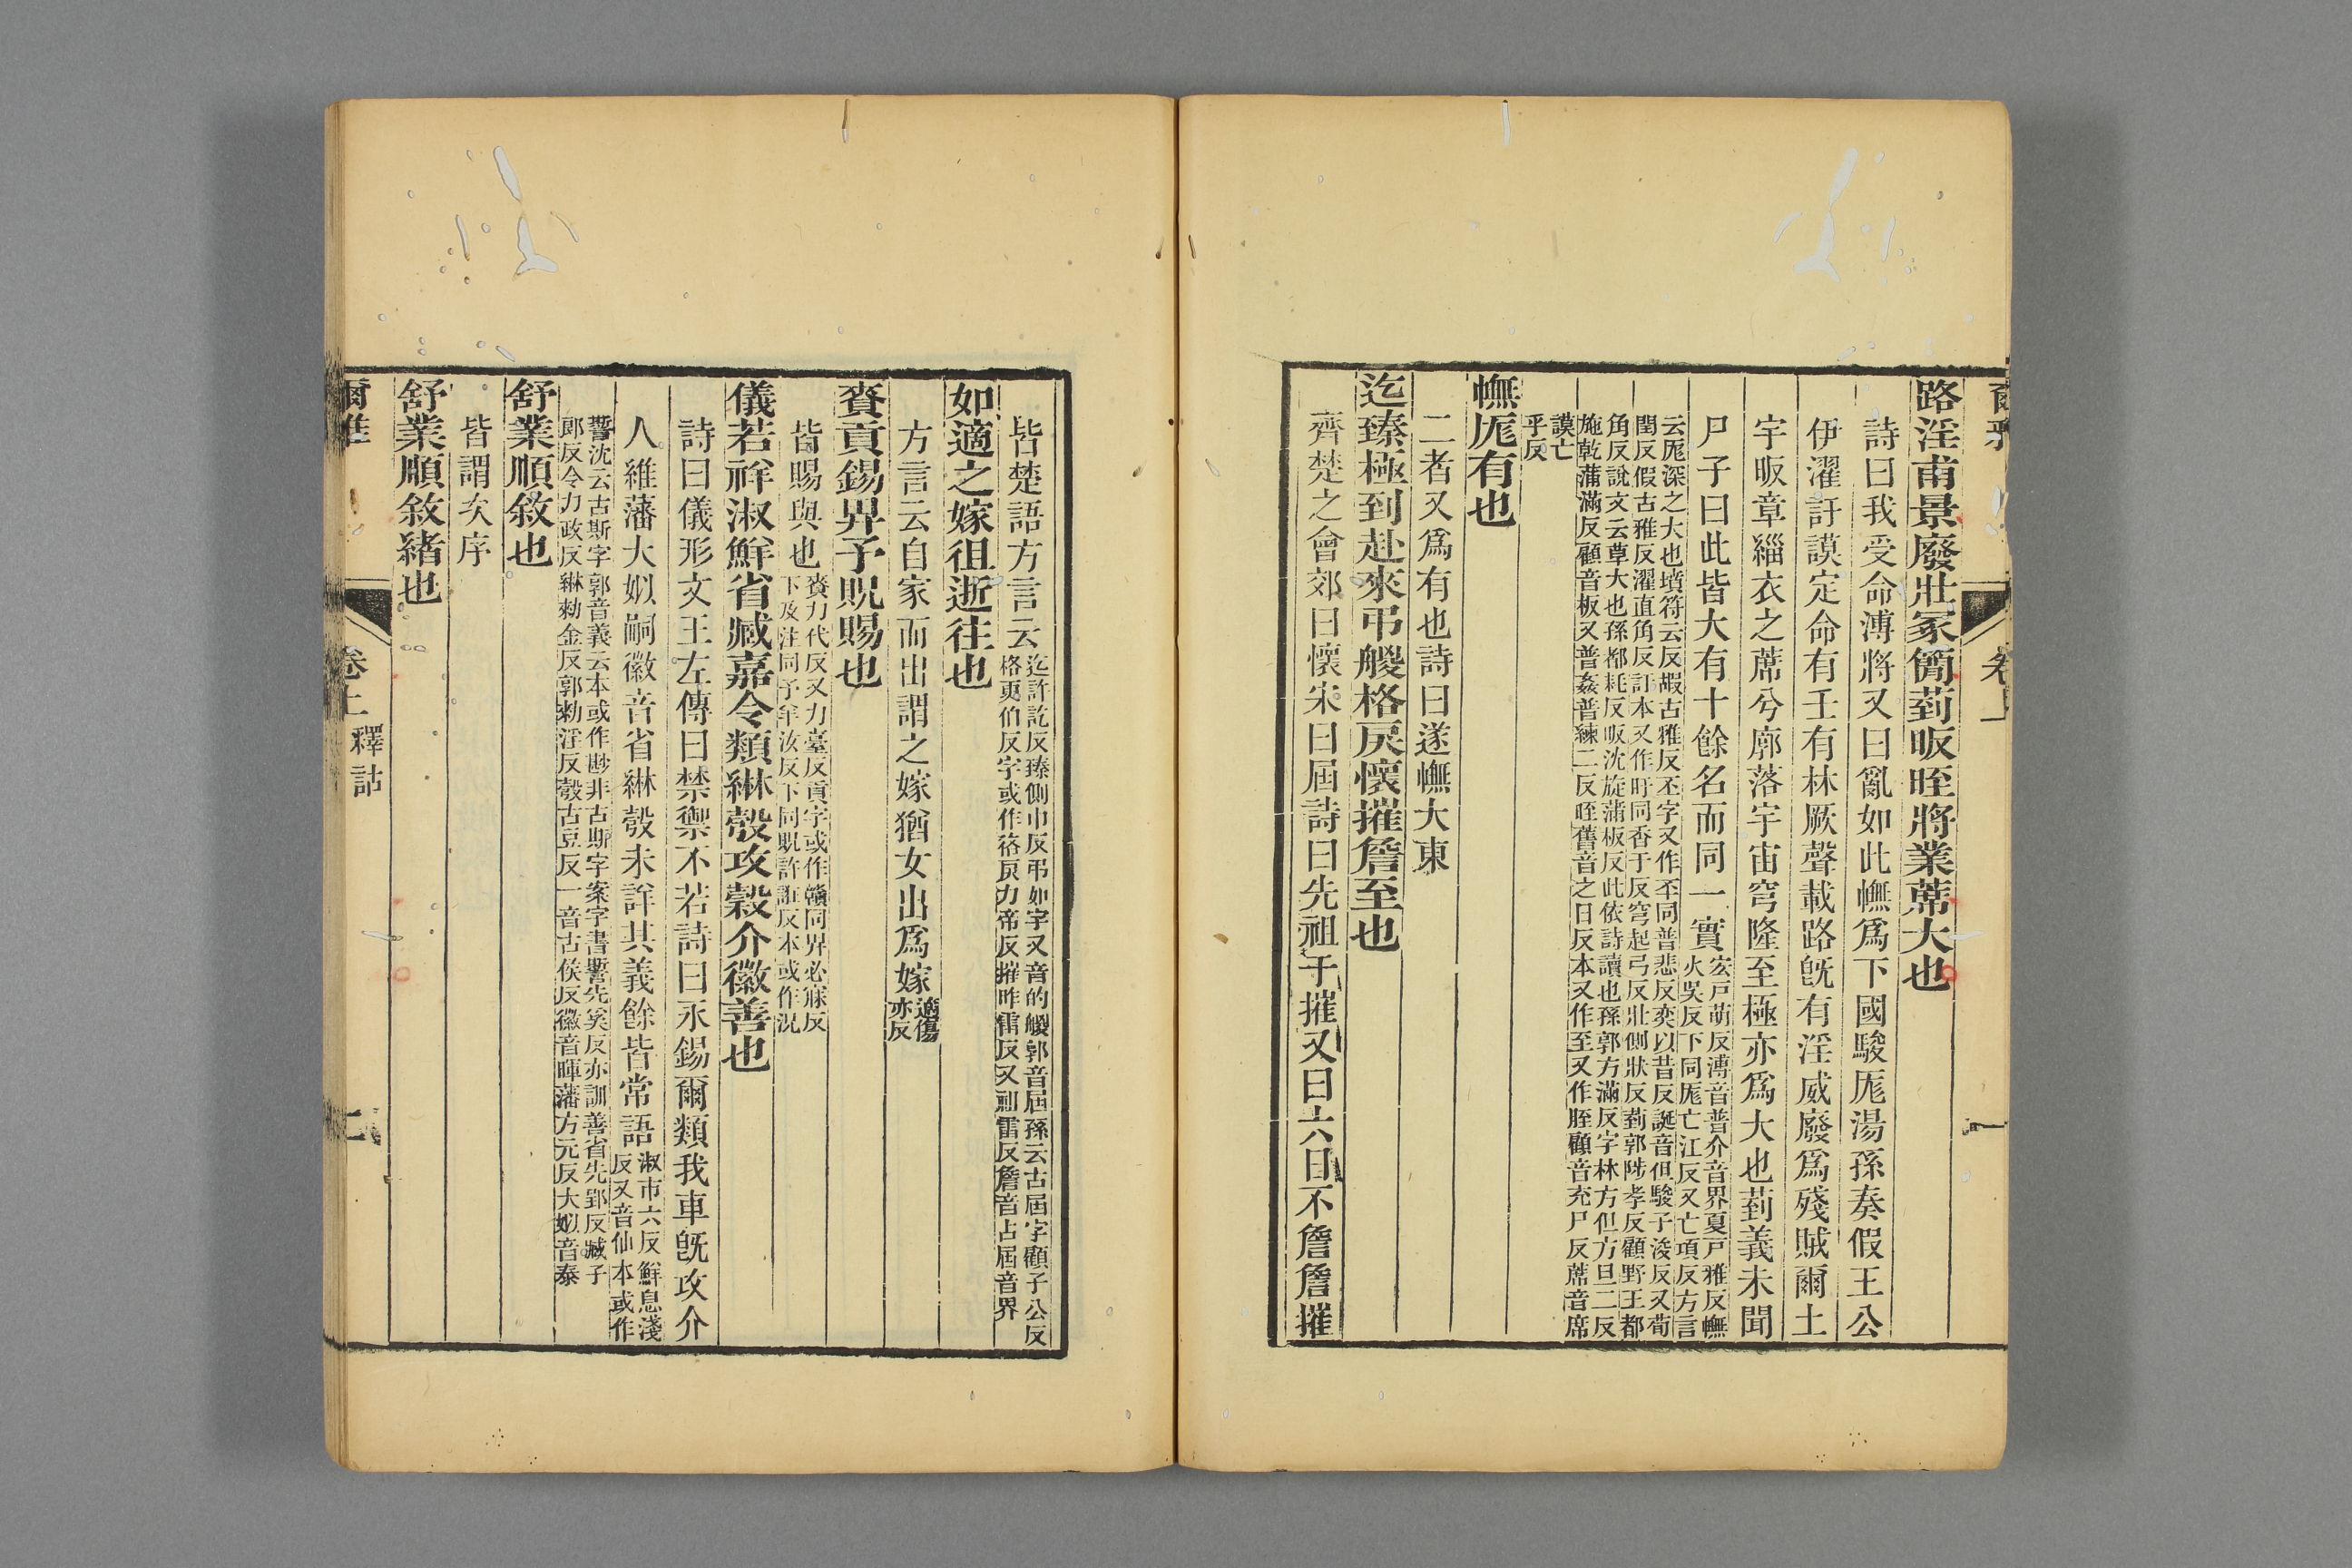 爾雅
卷上
路淫甫景廢壯冢簡菿昄晊將業蓆大也
詩曰我受命溥將又曰亂如此幠爲下國駿厖湯孫奏假王公
伊濯訏謨定命有壬有林厥聲載路旣有淫威廢爲殘賊爾土
宇昄章緇衣之蓆兮廓落宇宙穹隆至極亦爲大也菿義未聞
尸子曰此皆大有十餘名而同一實宏戸萌反溥音普介音界夏戸雅反幠
火吳反下同厖亡江反又亡項反方言
云厖深之大也墳符云反嘏古雅反丕字又作㔻同普悲反奕以昔反誕音但駿子浚反又荀
閏反假古雅反濯直角反訏本又作盱同香于反穹起弓反壯側狀反菿郭陟孝反顧野王都
角反說文云草大也孫都耗反昄沈旋蒲板反此依詩讀也孫郭方滿反字林方但方旦二反
施乾蒲滿反顧音板又普姦普練二反晊舊音之日反本又作至又作胵顧音充尸反蓆音席
謨亡
乎反
幠厖有也
二者又爲有也詩曰遂幠大東
迄臻極到赴來弔艐格戾懷摧詹至也
齊楚之會郊曰懷宋曰屆詩曰先祖于摧又曰六日不詹詹摧
皆楚語方言云迄許訖反臻側巾反弔如字又音的艐郭音屆孫云古屆字顧子公反
格更伯反字或作㣟戾力帝反摧昨雷反又副雷反詹音占屆音界
如適之嫁徂逝往也
方言云自家而出謂之嫁猶女出爲嫁適傷
亦反
賚貢錫畀予貺賜也
皆賜與也賚力代反又力臺反貢字或作贛同畀必寐反
下及注同予羊汝反下同貺許誑反本或作況
儀若祥淑鮮省臧嘉令類綝彀攻穀介徽善也
詩曰儀形文王左傳曰禁禦不若詩曰永錫爾類我車旣攻介
人維藩大姒嗣徽音省綝彀未詳其義餘皆常語淑市六反鮮息淺
反又音仙本或作
誓沈云古斯字郭音義云本或作尠非古斯字案字書誓先奚反亦訓善省先郢反臧子
郎反令力政反綝勑金反郭勑淫反彀古豆反一音古侯反徽音暉藩方元反大姒音泰
舒業順敘也
皆謂次序
舒業順敘緒也
爾雅
卷上 釋詁
二